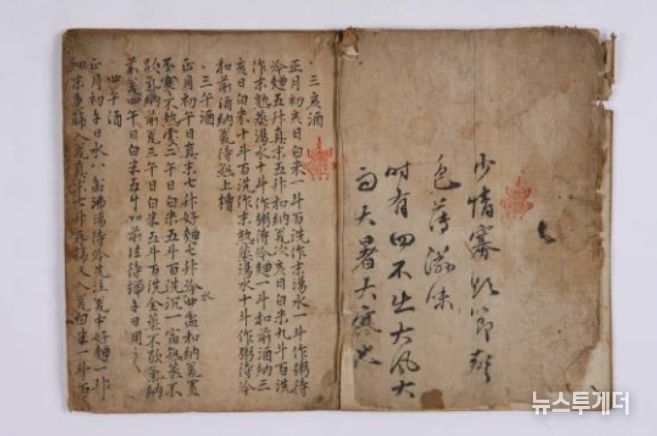 少情寡欲節聲
色薄滋味
時有四不出大風大
雨大暑大寒也
三亥酒
正月初亥日白米一斗百洗作末湯水一斗作粥待
冷麯五升真末五升和納瓮次亥日白米九斗百洗
作末熟蒸湯水十斗作粥待冷麯一斗和前酒納三
亥日白米十斗百洗作末熟蒸湯水十斗作粥待冷
和前酒納瓮待熟上槽
三午酒
正月初午日真末七升好麯七升冷水四盆和納瓮置
不寒不熱處二午日白米五斗百洗沉一宿熟蒸不
歇氣納前瓮三午日白米五斗百洗全蒸不歇氣納
前瓮四午日白米五斗如前法待端午日用之
四午酒
正月初午日水八盆沸湯待冷先注瓮中好麯一斗
細末重篩入瓮真末七升再篩又入瓮白米一斗百
뉴스투게더